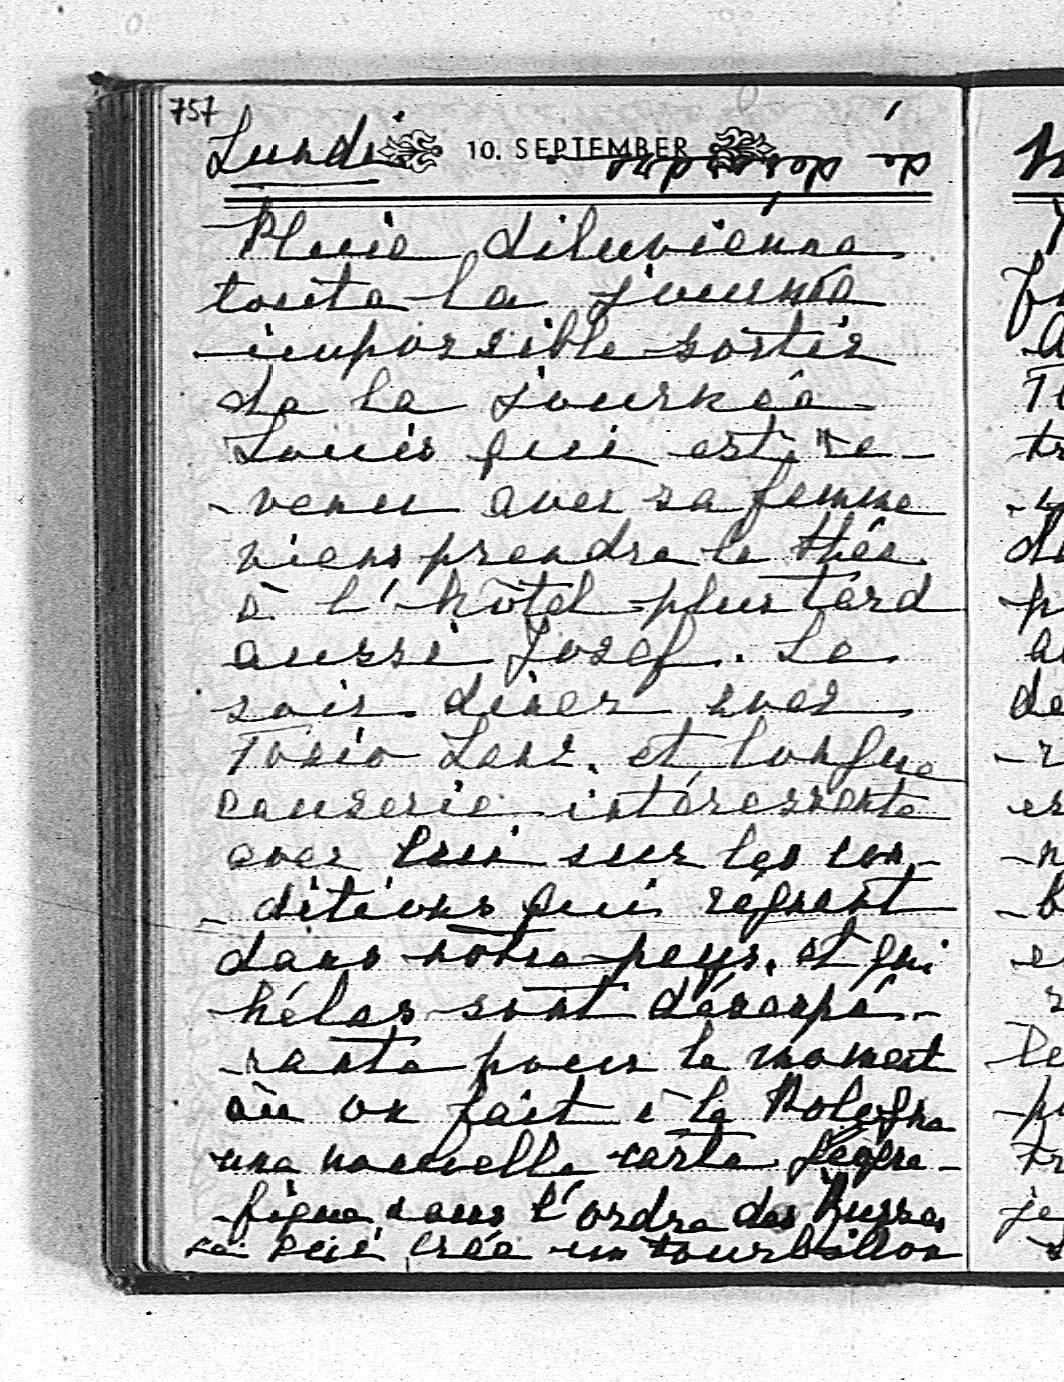 757
Lundi
10. SEPTEMBER
de désordre
Pluie diluviénne
toute la journée
impossible sortir
de la journée
Louis qui est re-
-venu avec sa femme
viens prendre le thée
à l'hôtel plus tard
aussi Josef. Le
soir diner avec
Tonio Lanz. et longue
causerie intéressente
avec lui sur les con-
-ditions qui régnent
dans notre pays, et qui
hélas sont désespé-
-rante pour le moment
où on fait à la Pologne
une nouvelle carte géogra-
-fique sous l'ordre des Russes
crée un tourbillon